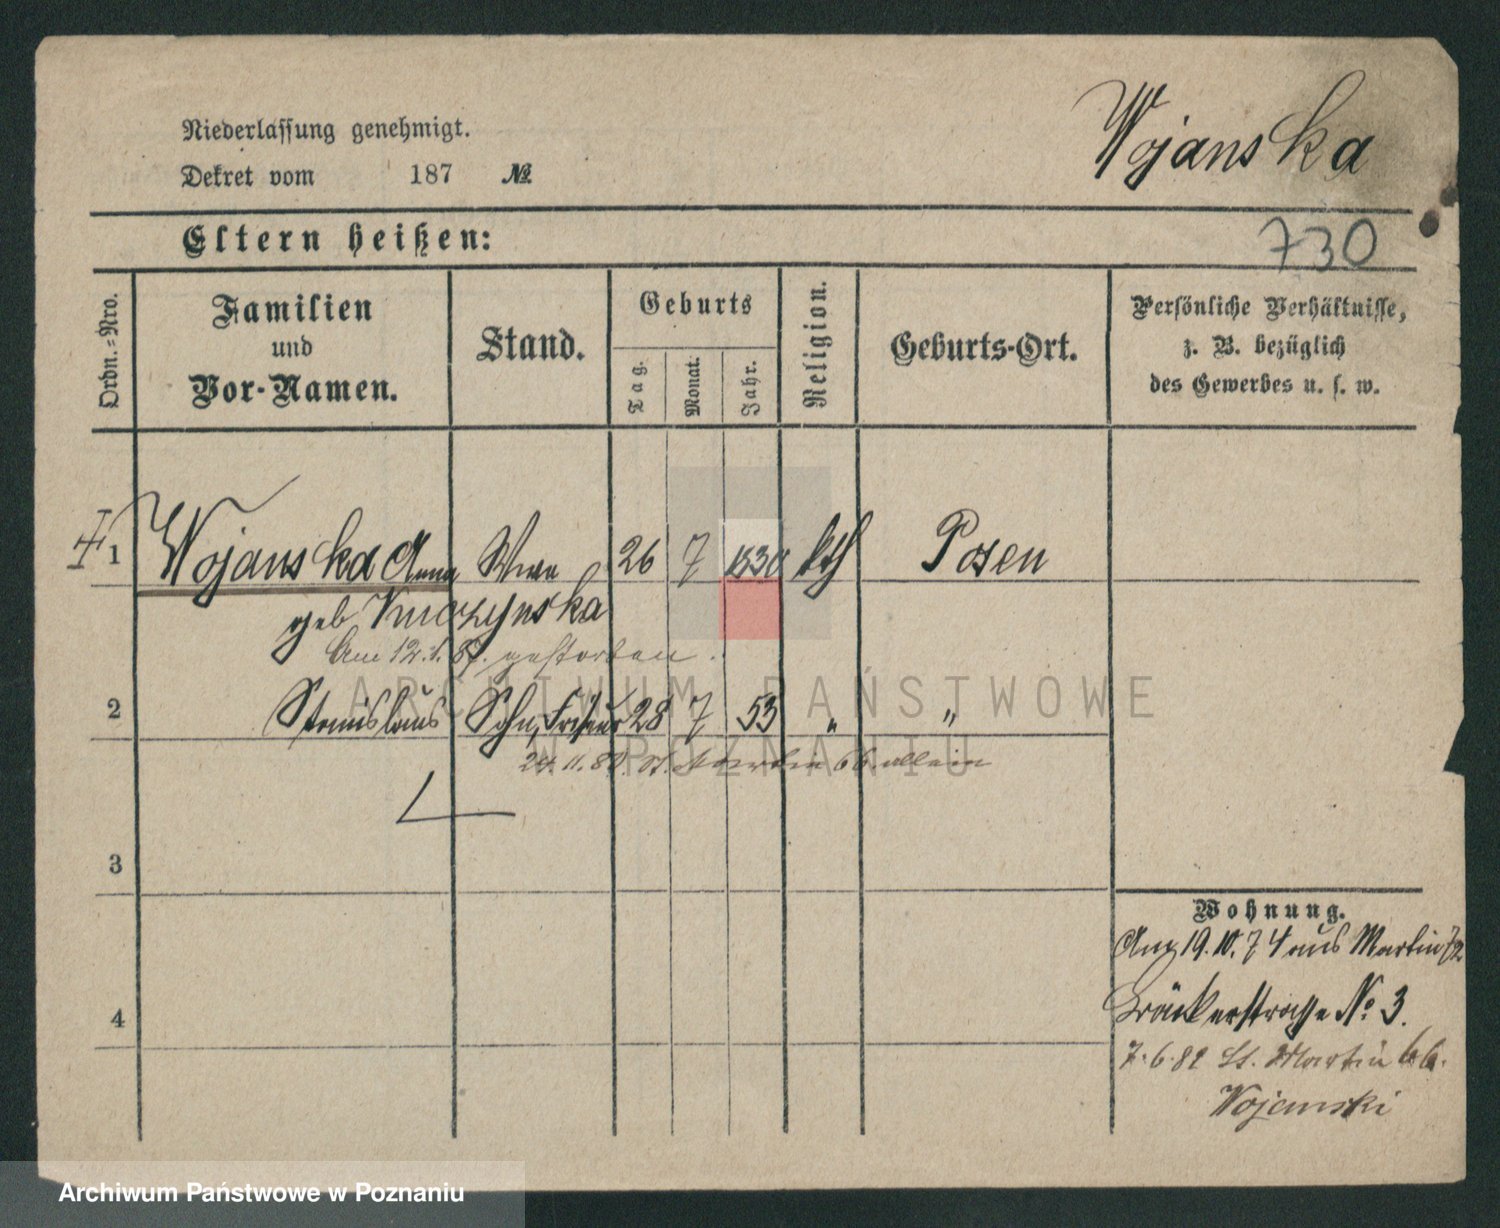 Niederlassung genehmigt.
Dekret vom 187 №
Wojanska
Eltern heißen:
730
Ordn.-Nro.
Familien
und
Vor-Namen.
Stand.
Geburts
Tag.
Monat.
Jahr.
Religion.
Geburts-Ort.
Persönliche Verhältnisse,
z. B. bezüglich
des Gewerbes u. s. w.
1 Wojanska Anna Wwe 26 7 1830 kth Posen
geb Kuczynska
Am 12. 1. 87. gestorben.
ARCHIWUM PAŃSTWOWE
2 Stanislaus Sohn, Friseur 28 7 53 " "
W POZNANIU
24. 11. 88. St. Martin 66 allein
3
4
Wohnung.
Ang 19. 10. 74 aus Martin 72
Bäckerstrasse No 3.
7. 6. 82 St. Martin 66.
Wojanski
Archiwum Państwowe w Poznaniu